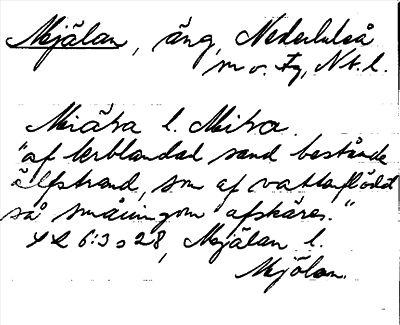 Mjälan, äng, Nederluleå
sn o. Fg, Nb. l.
Miäva l. Miva.
"af lerblandad sand bestående
älfstrand, som af vattenflödet
så småningom afskäres."
6:3 s 28, Mjälan l.
Mjölan.